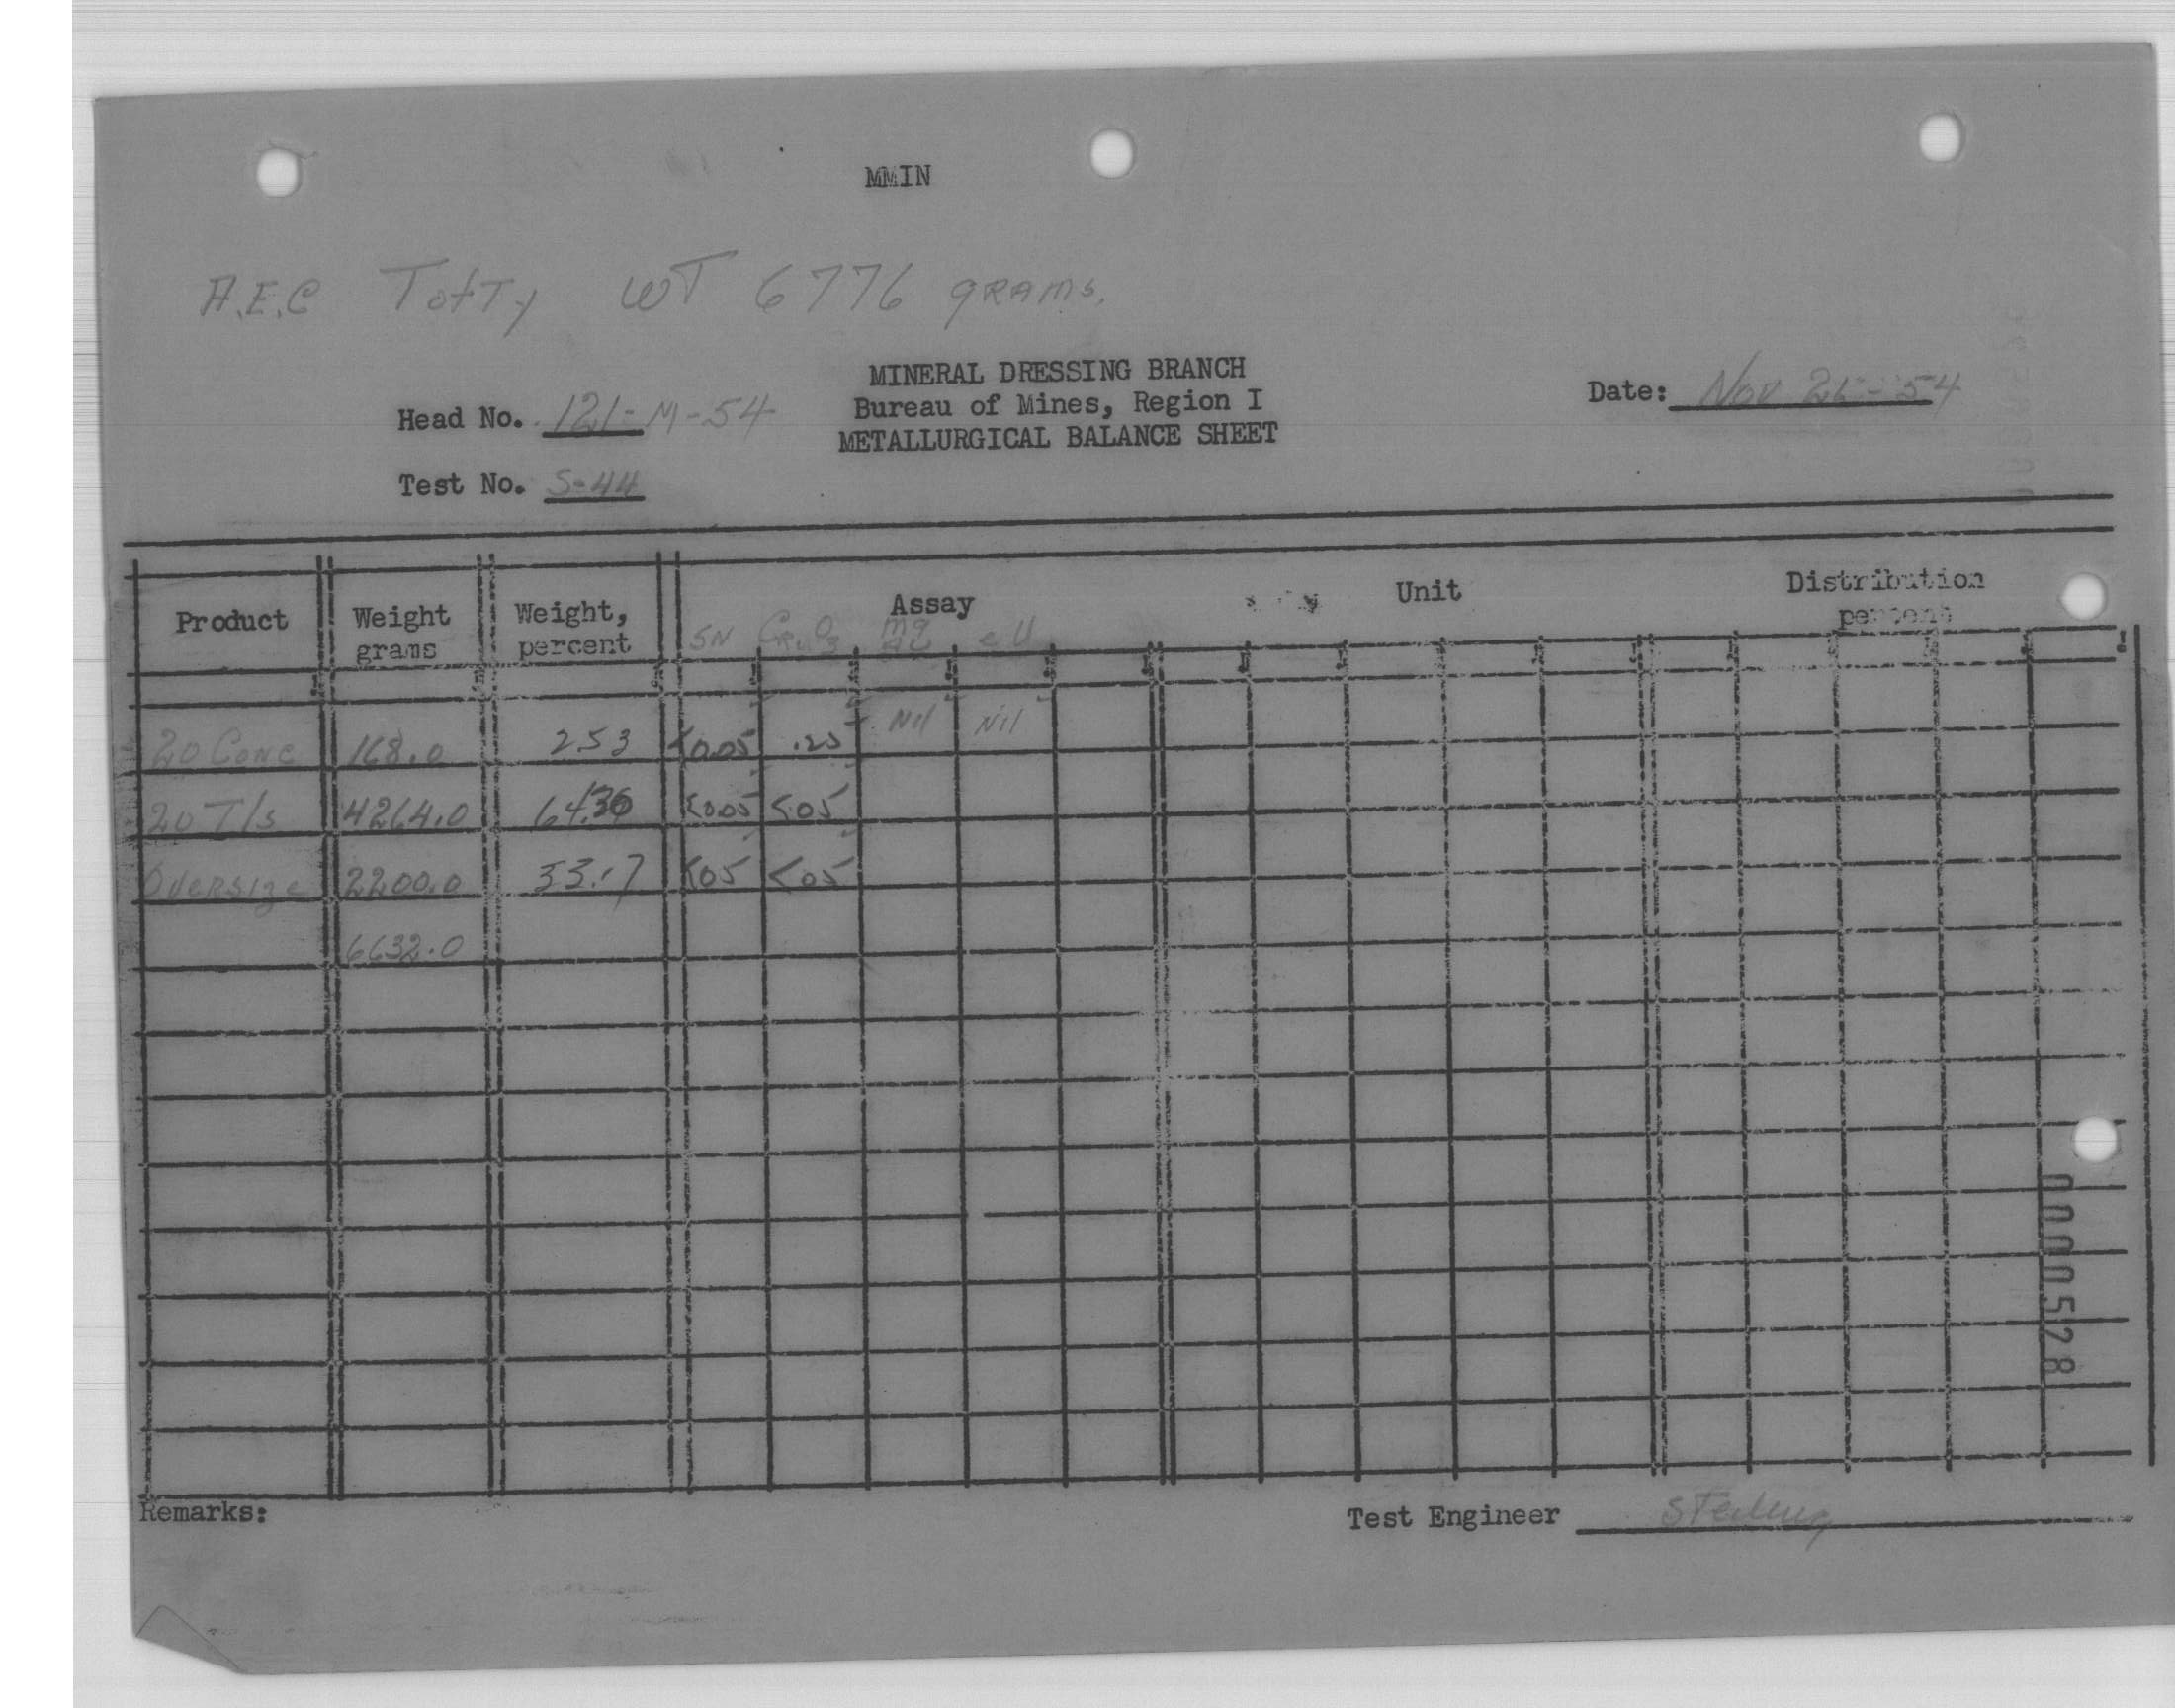 MMIN
A.E.C Totty WT 6776 grams.
MINERAL DRESSING BRANCH
Head No. 121-M-54 Bureau of Mines, Region I Date: Nov -54
METALLURGICAL BALANCE SHEET
Test No. S-44
Product Weight grams Weight, percent Assay Unit Distribution percent
SN eU
20 Conc 168.0 2.53 <0.05 .25 Nil Nil
20 T/s 4264.0 64.30 <0.05 <.05
Oversize 2200.0 33.17 <.05 <.05
6632.0
0000528
Remarks: Test Engineer Sterling